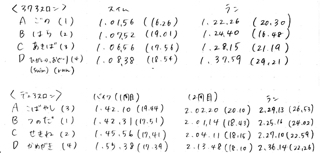 <スイスロン> スイム ラン
A ごの (1) 1.01,56 (16.26) 1.22.26 (20.30)
B はら (2) 1.07,52 (19.01) 1.24,40 (16.48)
C あきば (3) 1.06,56 (17.56) 1.28,15 (21.19)
D (4) 1.08,38 (18.54) 1.37.59 (29,21)
(5km)
<デュアスロン> バイク (1周目) (2周目) ラン
A こばやし (3) 1.42.10 (19.44) 2.02,20 (20.10) 2.29,13 (26,53)
B つのだ (1) 1.42.31 (17,51) 2.01,14 (18.43) 2.25,14 (24.02)
C せきね (2) 1.45.56 (17,41) 2.04.11 (18.15) 2.27,10 (22.59)
D かめがき (4) 1.55.38 (17.39) 2.13.48 (18.10) 2.36,14 (22,26)